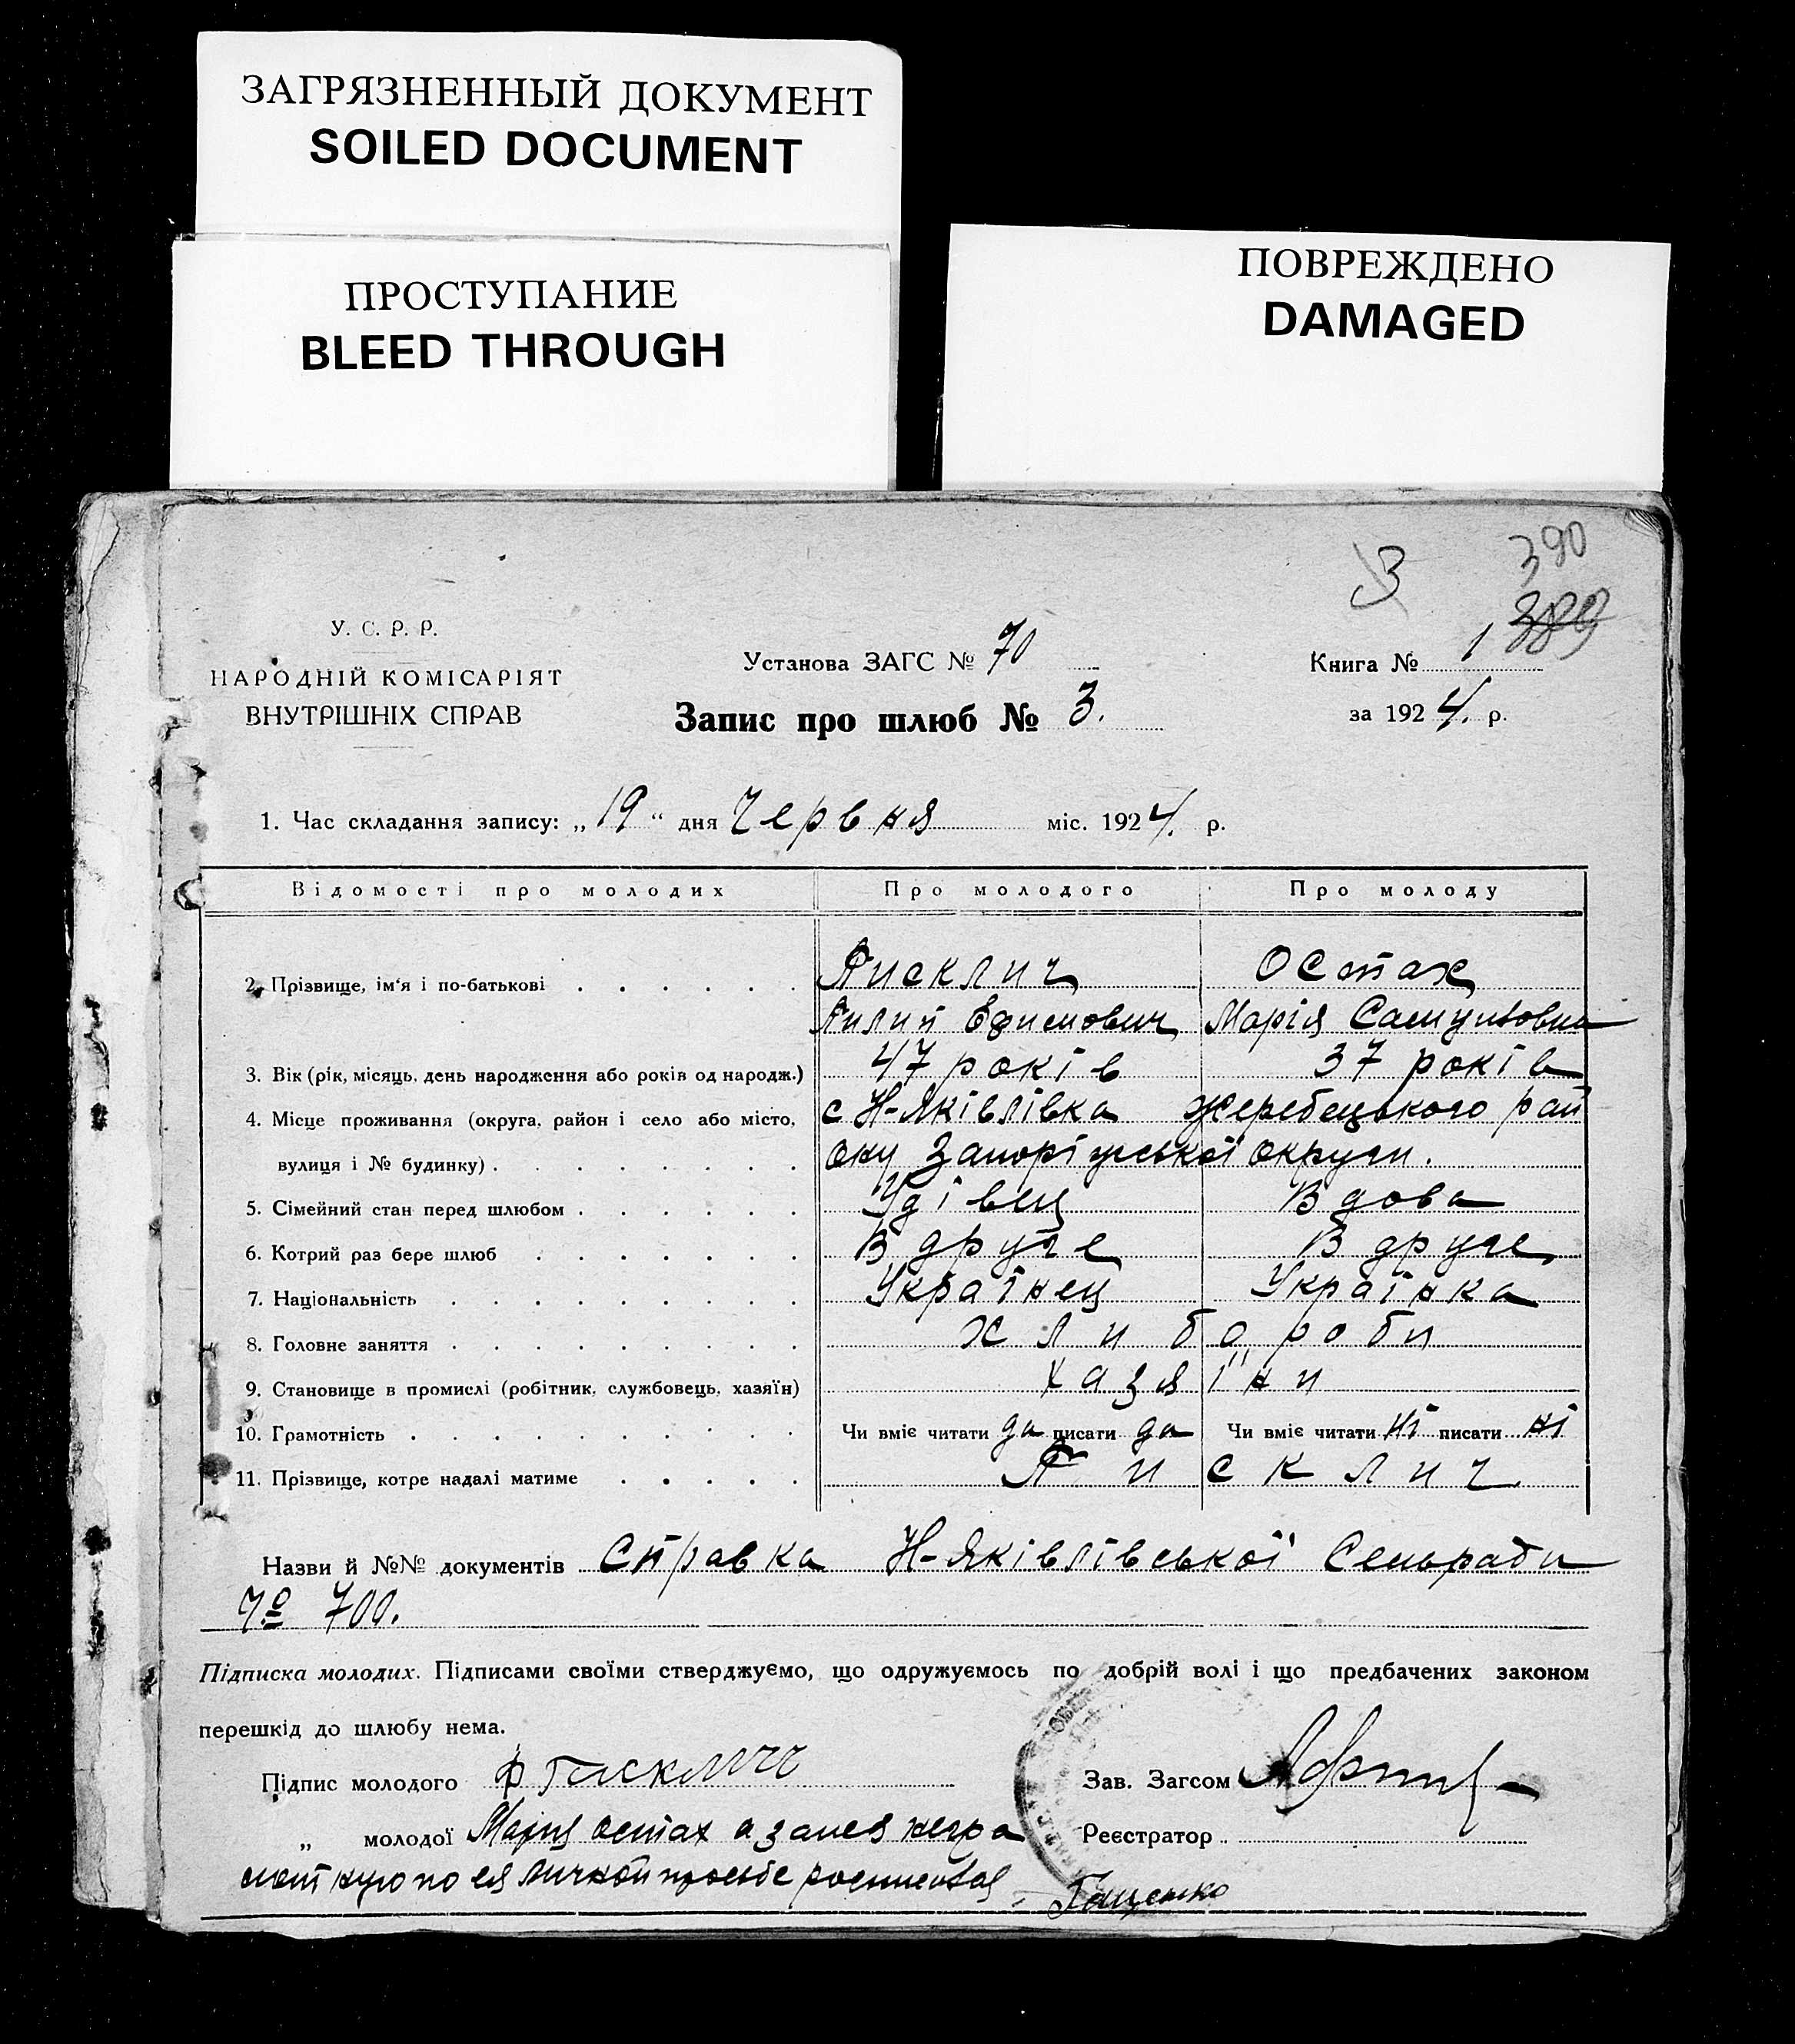 ЗАГРЯЗНЕННЫЙ ДОКУМЕНТ
SOILED DOCUMENT
ПРОСТУПАНИЕ
BLEED THROUGH
ПОВРЕЖДЕНО
DAMAGED
3 390
389
У. С. Р. Р.
НАРОДНІЙ КОМІСАРІЯТ
ВНУТРІШНІХ СПРАВ
Установа ЗАГС № 70
Запис про шлюб № 3.
Книга № 1
за 1924. р.
1. Час складання запису: „19“ дня Червня міс. 1924. р.
Відомості про молодих Про молодого Про молоду
2. Прізвище, ім‘я і по-батькові Писклич Остах
Пилип Ефимович Марія Самуиловна
3. Вік (рік, місяць, день народження або років од народж.) 47 років 37 років
4. Місце проживання (округа, район і село або місто, с Н-Яківлівка Жеребецького рай
вулиця і № будинку) ону Запоріжської округи.
5. Сімейний стан перед шлюбом Удівец Вдова
6. Котрий раз бере шлюб В друге В друге
7. Національність Українец Українка
8. Головне заняття хлибороби
9. Становище в промислі (робітник, службовець, хазяїн) хазяїни
10. Грамотність Чи вміє читати да писати да Чи вміє читати ні писати ні
11. Прізвище, котре надалі матиме Писклич
Назви й №№ документів Справка Н-Яківлівської Сельради
№ 700.
Підписка молодих. Підписами своїми стверджуємо, що одружуємось по добрій волі і що предбачених законом
перешкід до шлюбу нема.
Підпис молодого Ф Пискличь
Зав. Загсом
„ молодої Мария Остах а за нея негра
мотную по ея личной просьбе росписался
Реєстратор
Гащенко